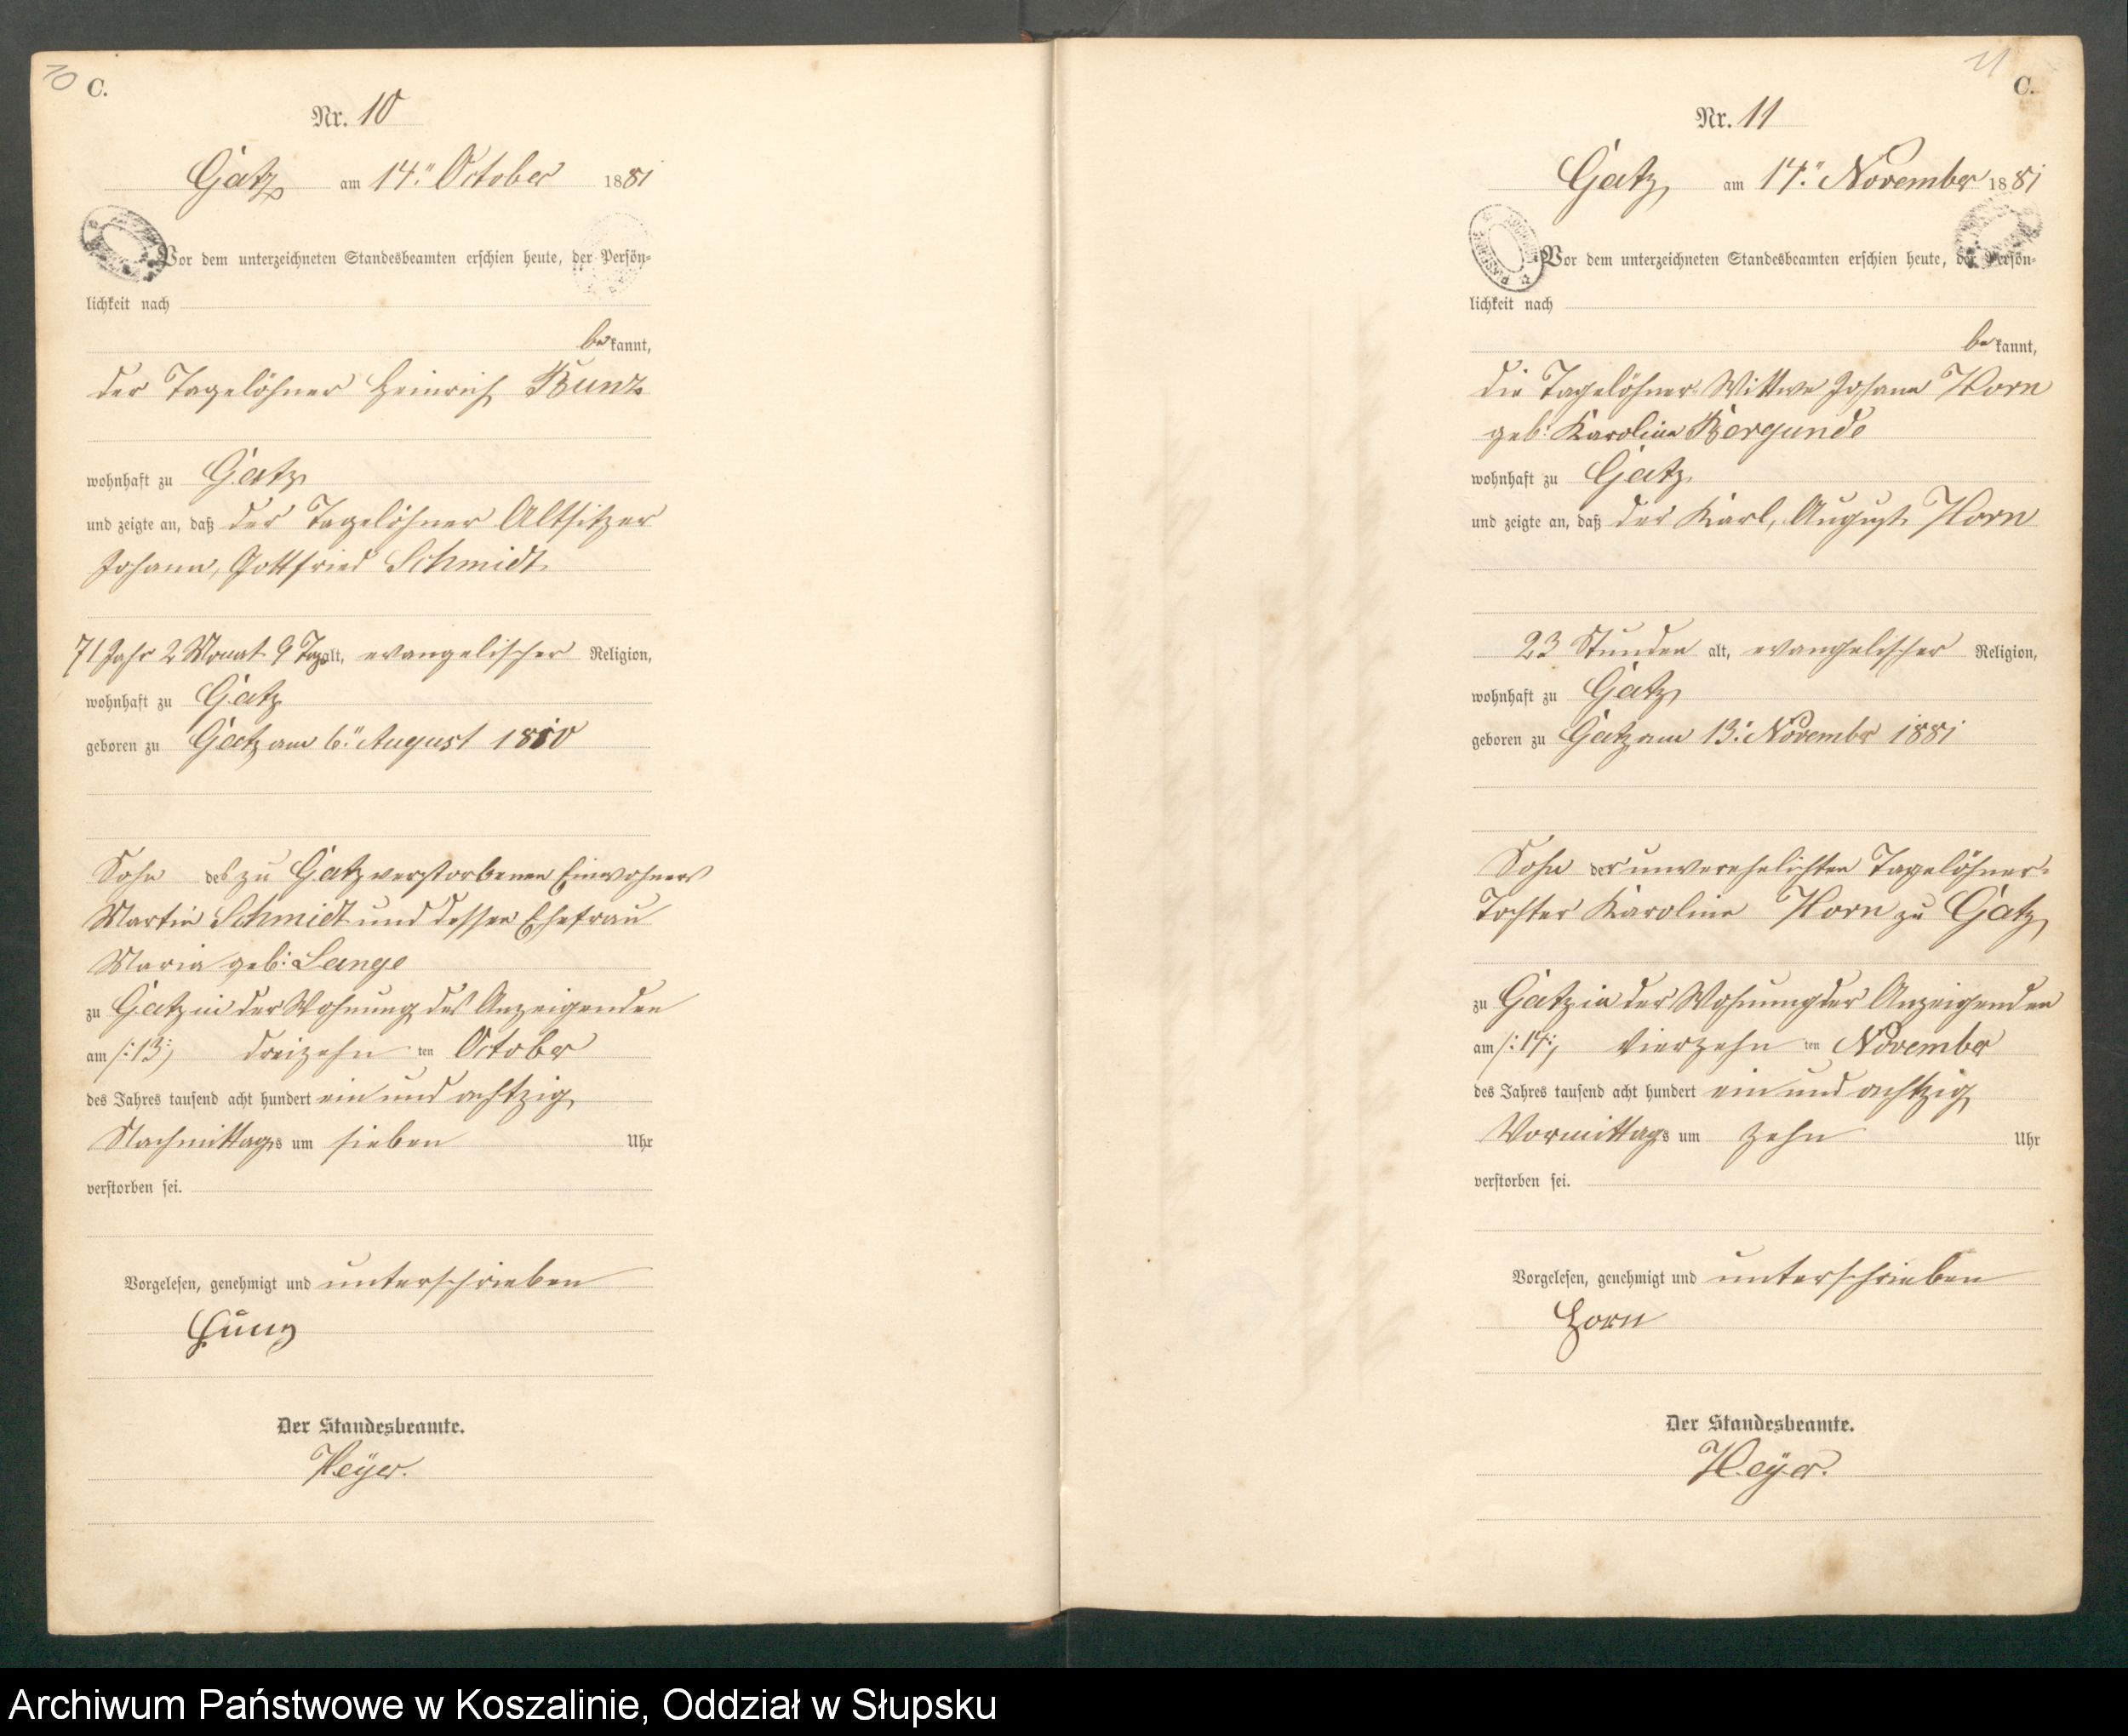 10 C.
Nr. 10
Gatz am 14." October 1881
Vor dem unterzeichneten Standesbeamten erschien heute, der Persön-
lichkeit nach
bekannt,
der Tagelöhner Heinrich
wohnhaft zu Gatz
und zeigte an, daß der Tagelöhner Altsitzer
Johann, Gottfried Schmidt
71 Jahr 2 Monat 9 Tag alt, evangelischer Religion,
wohnhaft zu Gatz
geboren zu Gatz am 6." August 1810
Sohn des zu Gatz verstorbenen Einwohners
Martin Schmidt und dessen Ehefrau
Maria geb: Lange
zu Gatz in der Wohnung des Anzeigenden
am /:13:/ dreizehn ten October
des Jahres tausend acht hundert ein und achtzig
Nachmittags um sieben Uhr
verstorben sei.
Vorgelesen, genehmigt und unterschrieben
Der Standesbeamte.
Heÿer.
11 C.
Nr. 11
Gatz, am 14." November 1881
Vor dem unterzeichneten Standesbeamten erschien heute, der Persön-
lichkeit nach
bekannt,
die Tagelöhner Wittwe Johann Horn
geb: Karoline Bergunde
wohnhaft zu Gatz
und zeigte an, daß der Karl, August Horn
23 Stunden alt, evangelischer Religion,
wohnhaft zu Gatz,
geboren zu Gatz am 13: November 1881
Sohn der unverehelichten Tagelöhner-
Tochter Karoline Horn zu Gatz,
zu Gatz in der Wohnung der Anzeigenden
am /:14:/ vierzehn ten November
des Jahres tausend acht hundert ein und achtzig
Vormittags um zehn Uhr
verstorben sei.
Vorgelesen, genehmigt und unterschrieben
Horn
Der Standesbeamte.
Heÿer.
Archiwum Państwowe w Koszalinie, Oddział w Słupsku